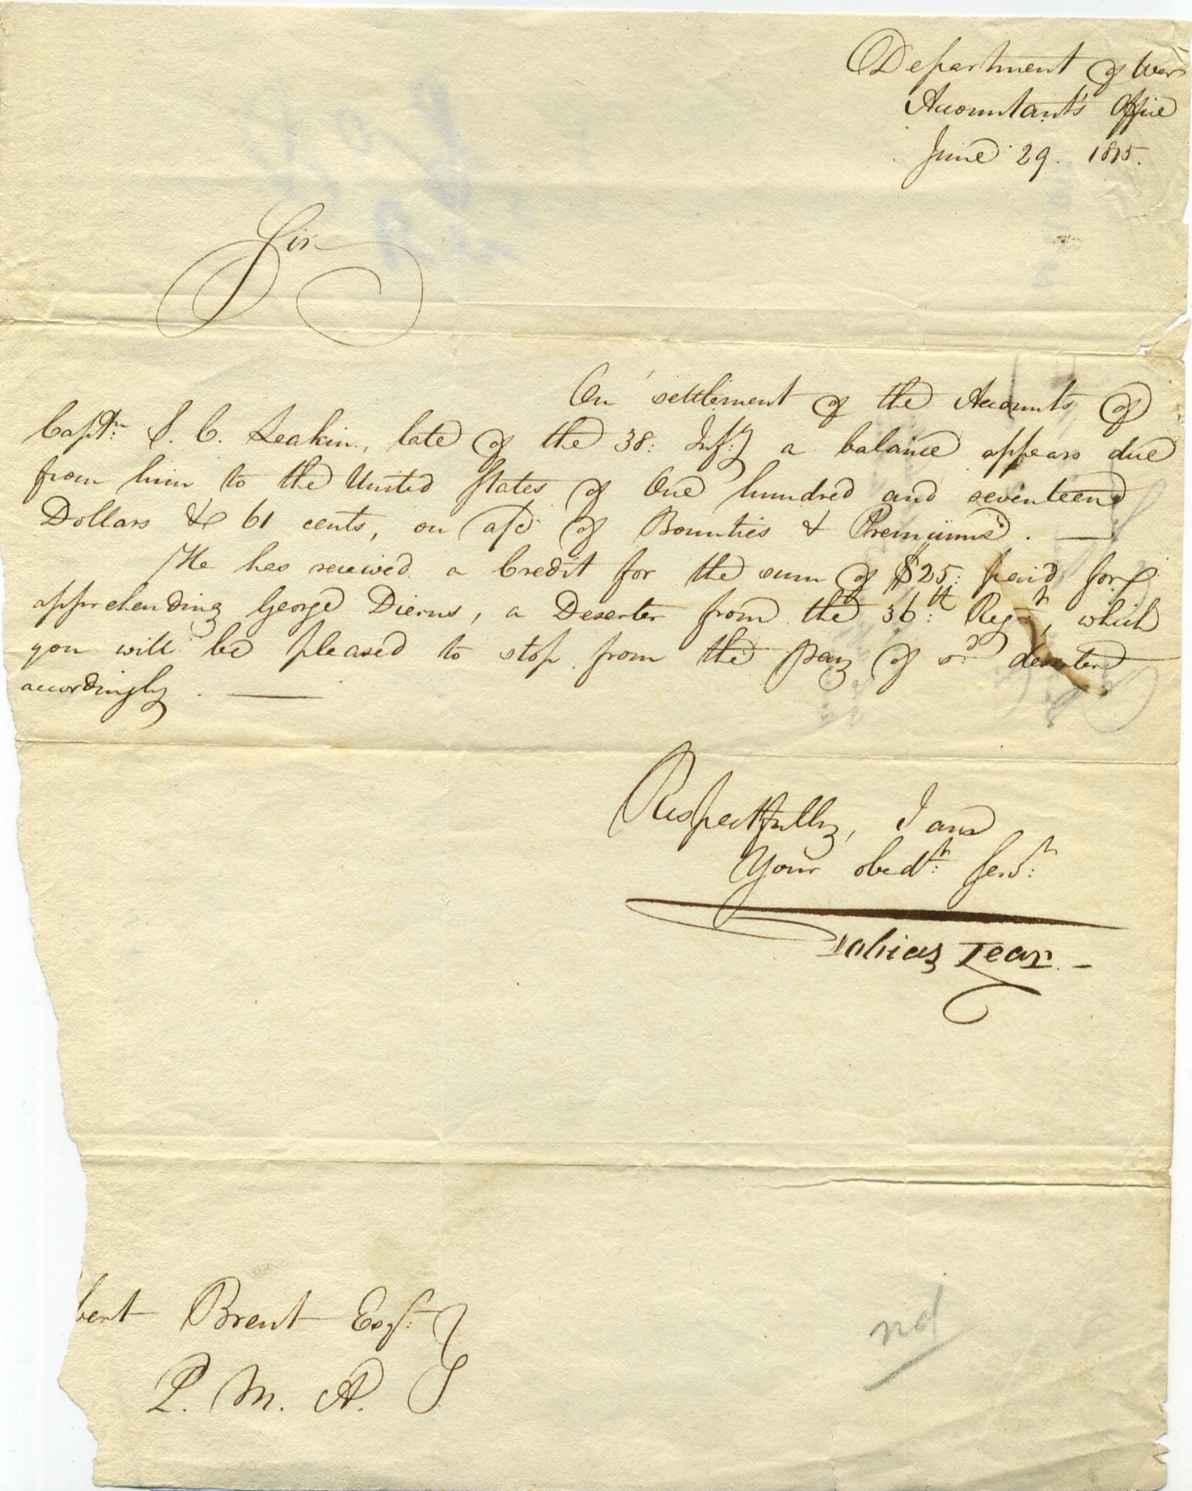 Department of War
Accountant's Office
June 29. 1815.
Sir
On settlement of the Accounts of
Captn: S. C. Leakin, late of the 38: Infy: a balance appears due
from him to the United States of One hundred and seventeen
Dollars & 61 cents, on a/c of Bounties & Premiums. —
He has received a Credit for the sum of $25: paid for
apprehending George Dierns, a Deserter from the 36th: Regt, which
you will be pleased to stop from the pay of sd deserter
accordingly. —
Respectfully, I am
Your obedt: Servt:
Tobias Lear. –
bert Brent Esqr:
P. M. A.
nd